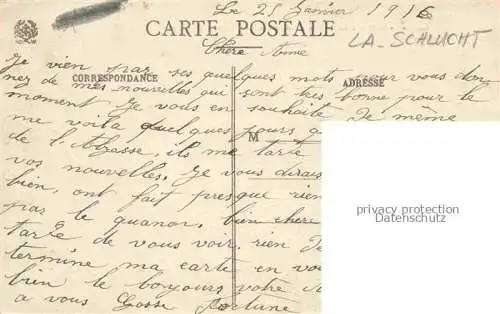 Le 25 Janvier 1916
CARTE POSTALE
LA-SCHLUCHT
Chère Anne
Je vien par ses quelques mots pour vous don-
CORRESPONDANCE
ADRESSE
nez de mes nouvelles qui sont très bonne pour le
moment Je vous en souhaite De même
me voila quelques jours
M
de l'Alsasse, ils me tarde
vos nouvelles. Je vous dirais
bien, ont fait presque rien
pas le bien chere
tarde de vous voir, rien
termine ma carte en vous
bien le bonjours votre
a vous Fortune
privacy protection
Datenschutz